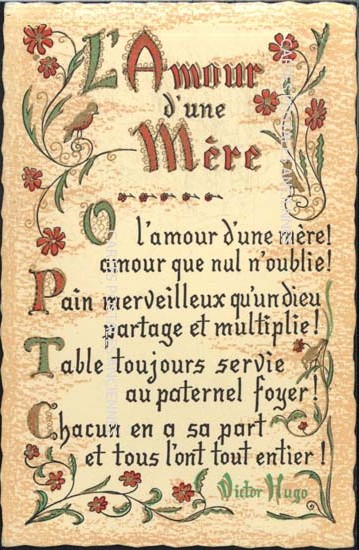 L'Amour
d'une
Mère
O l'amour d'une mère!
amour que nul n'oublie!
Pain merveilleux qu'un dieu
partage et multiplie!
Table toujours servie
au paternel foyer!
Chacun en a sa part
et tous l'ont tout entier!
Victor Hugo